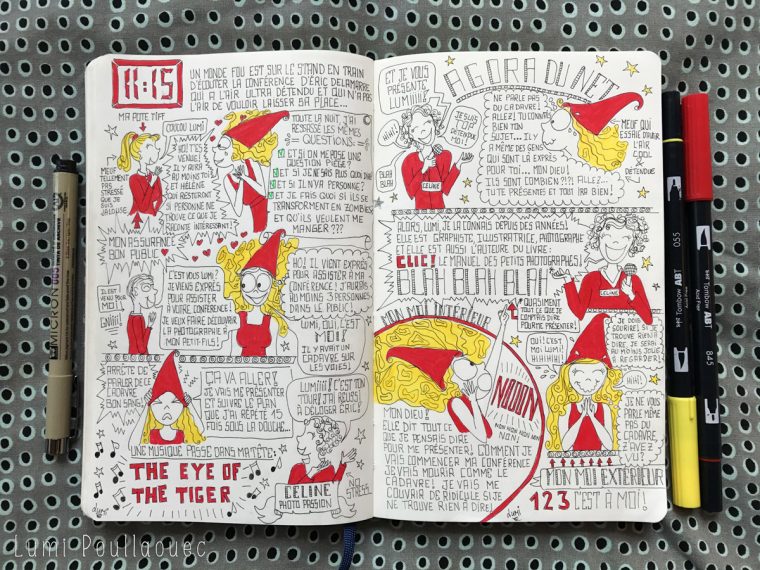 11:15
UN MONDE FOU EST SUR LE STAND EN TRAIN
D'ÉCOUTER LA CONFÉRENCE D'ÉRIC DELAMARRE
QUI A L'AIR ULTRA DÉTENDU ET QUI N'A PAS
L'AIR DE VOULOIR LAISSER SA PLACE...
MA POTE TIFF
COUCOU LUMI
VENUE!
IL Y AURA
AU MOINS TOI
ET HÉLÈNE
QUI RESTERONT
SI PERSONNE NE
TROUVE CE QUE JE
RACONTE INTÉRESSANT!
MEUF
TELLEMENT
PAS
STRESSÉ
QUE JE
SUIS
JALOUSE
TOUTE LA NUIT J'AI
RESSASSÉ LES MÊMES
QUESTIONS:
ET SI ON ME POSE UNE
QUESTION PIÈGE?
ET SI JE NE SAIS PLUS QUOI DIRE
ET SI IL N'Y A PERSONNE?
ET JE FAIS QUOI SI ILS SE
TRANSFORMENT EN ZOMBIES
ET QU'ILS VEULENT ME
MANGER ???
MON ASSURANCE
BON PUBLIC
IL EST
VENU POUR
MOI!
C'EST VOUS LUMI?
JE VIENS EXPRÈS
POUR ASSISTER
À VOTRE CONFÉRENCE!
JE VEUX FAIRE DÉCOUVRIR
LA PHOTOGRAPHIE À
MON PETIT-FILS!
HO! IL VIENT EXPRÈS
POUR ASSISTER À MA
CONFÉRENCE! J'AURAI DU
AU MOINS 3 PERSONNES
DANS LE PUBLIC!
LUMI,
OUI, C'EST
MOI!
IL Y AVAIT UN
CADAVRE SUR
LES VOIES!
ARRÊTE DE
PARLER DE CE
CADAVRE
BON SANG!
ÇA VA ALLER!
JE VAIS ME PRÉSENTER
ET SUIVRE LE PLAN
QUE J'AI RÉPÉTÉ 15
FOIS SOUS LA DOUCHE...
LUMIIII! C'EST TON
TOUR! J'AI RÉUSSI
À DÉLOGER ÉRIC!
UNE MUSIQUE PASSE DANS MA TÊTE:
THE EYE OF
THE TIGER
CÉLINE
PHOTO PASSION
NO
STRESS
LUMI
ET JE VOUS
PRÉSENTE
LUMIIII!
HIHI!
JE SUIS
TOP
DÉTENDUE
MOI!
BLAH
BLAH
CÉLINE
AGORA DU NET
NE PARLE PAS
DU CADAVRE!
ALLEZ! TU CONNAIS
BIEN TON
SUJET... IL Y
A MÊME DES GENS
QUI SONT LÀ EXPRÈS
POUR TOI... MON DIEU!
ILS SONT COMBIEN ?!? ALLEZ...
TU TE PRÉSENTES ET TOUT IRA BIEN!
MEUF QUI
ESSAIE D'AVOIR
L'AIR
COOL
ET
DÉTENDUE
ALORS, LUMI, JE LA CONNAIS DEPUIS DES ANNÉES!
ELLE EST GRAPHISTE, ILLUSTRATRICE, PHOTOGRAPHE
ET ELLE EST AUSSI L'AUTEURE DU LIVRE:
CLIC! LE MANUEL DES PETITS PHOTOGRAPHES!
BLAH BLAH BLAH
CÉLINE
QUASIMENT
TOUT CE QUE JE
COMPTAIS DIRE
POUR ME PRÉSENTER!
MON MOI INTÉRIEUR
NOOON
NON NON NON NON
NON!
MON DIEU!
ELLE DIT TOUT CE
QUE JE PENSAIS DIRE
POUR ME PRÉSENTER! COMMENT JE
VAIS COMMENCER MA CONFÉRENCE
JE VAIS MOURIR COMME LE
CADAVRE! JE VAIS ME
COUVRIR DE RIDICULE SI JE
NE TROUVE RIEN À DIRE!
LUMI
OUI! C'EST
MOI LUMI
HIHIHIHI!
JE DOIS
SOURIRE! SI JE
TROUVE RIEN À
DIRE, JE SERAI
AU MOINS JOLIE
À REGARDER!
HIHI!
JE NE VOUS
PARLE MÊME
PAS DU
CADAVRE,
VOUS
AVEZ VU?
MON MOI EXTÉRIEUR
1 2 3 C'EST À MOI!
MICRON 005
055
Tombow ABT
845
Tombow ABT
Lumi Poullaouec